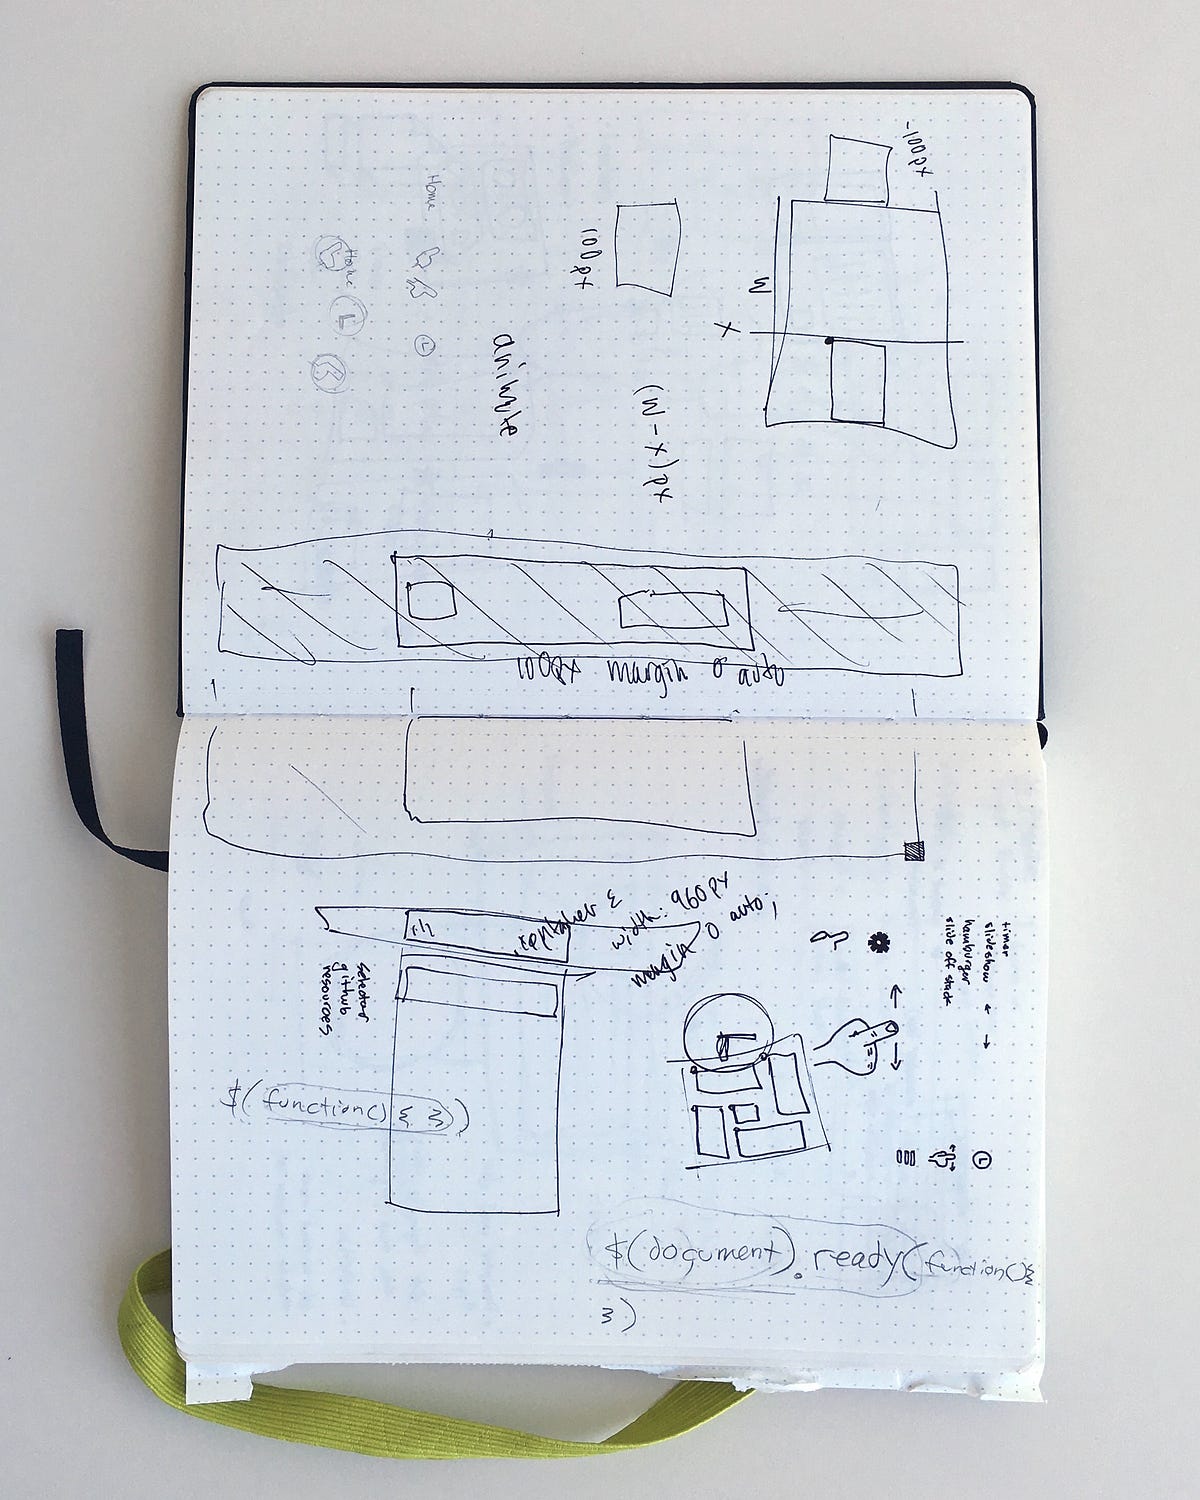 -100px
100px
W
X
(W-X)px
animate
Home
Home
L
L
100px margin 0 auto
.container {
width: 960px
margin 0 auto;
timer
slideshow ← →
hamburger
slide off stack
selector
github
resources
$(function() { })
L
$(document).ready(function(){
})